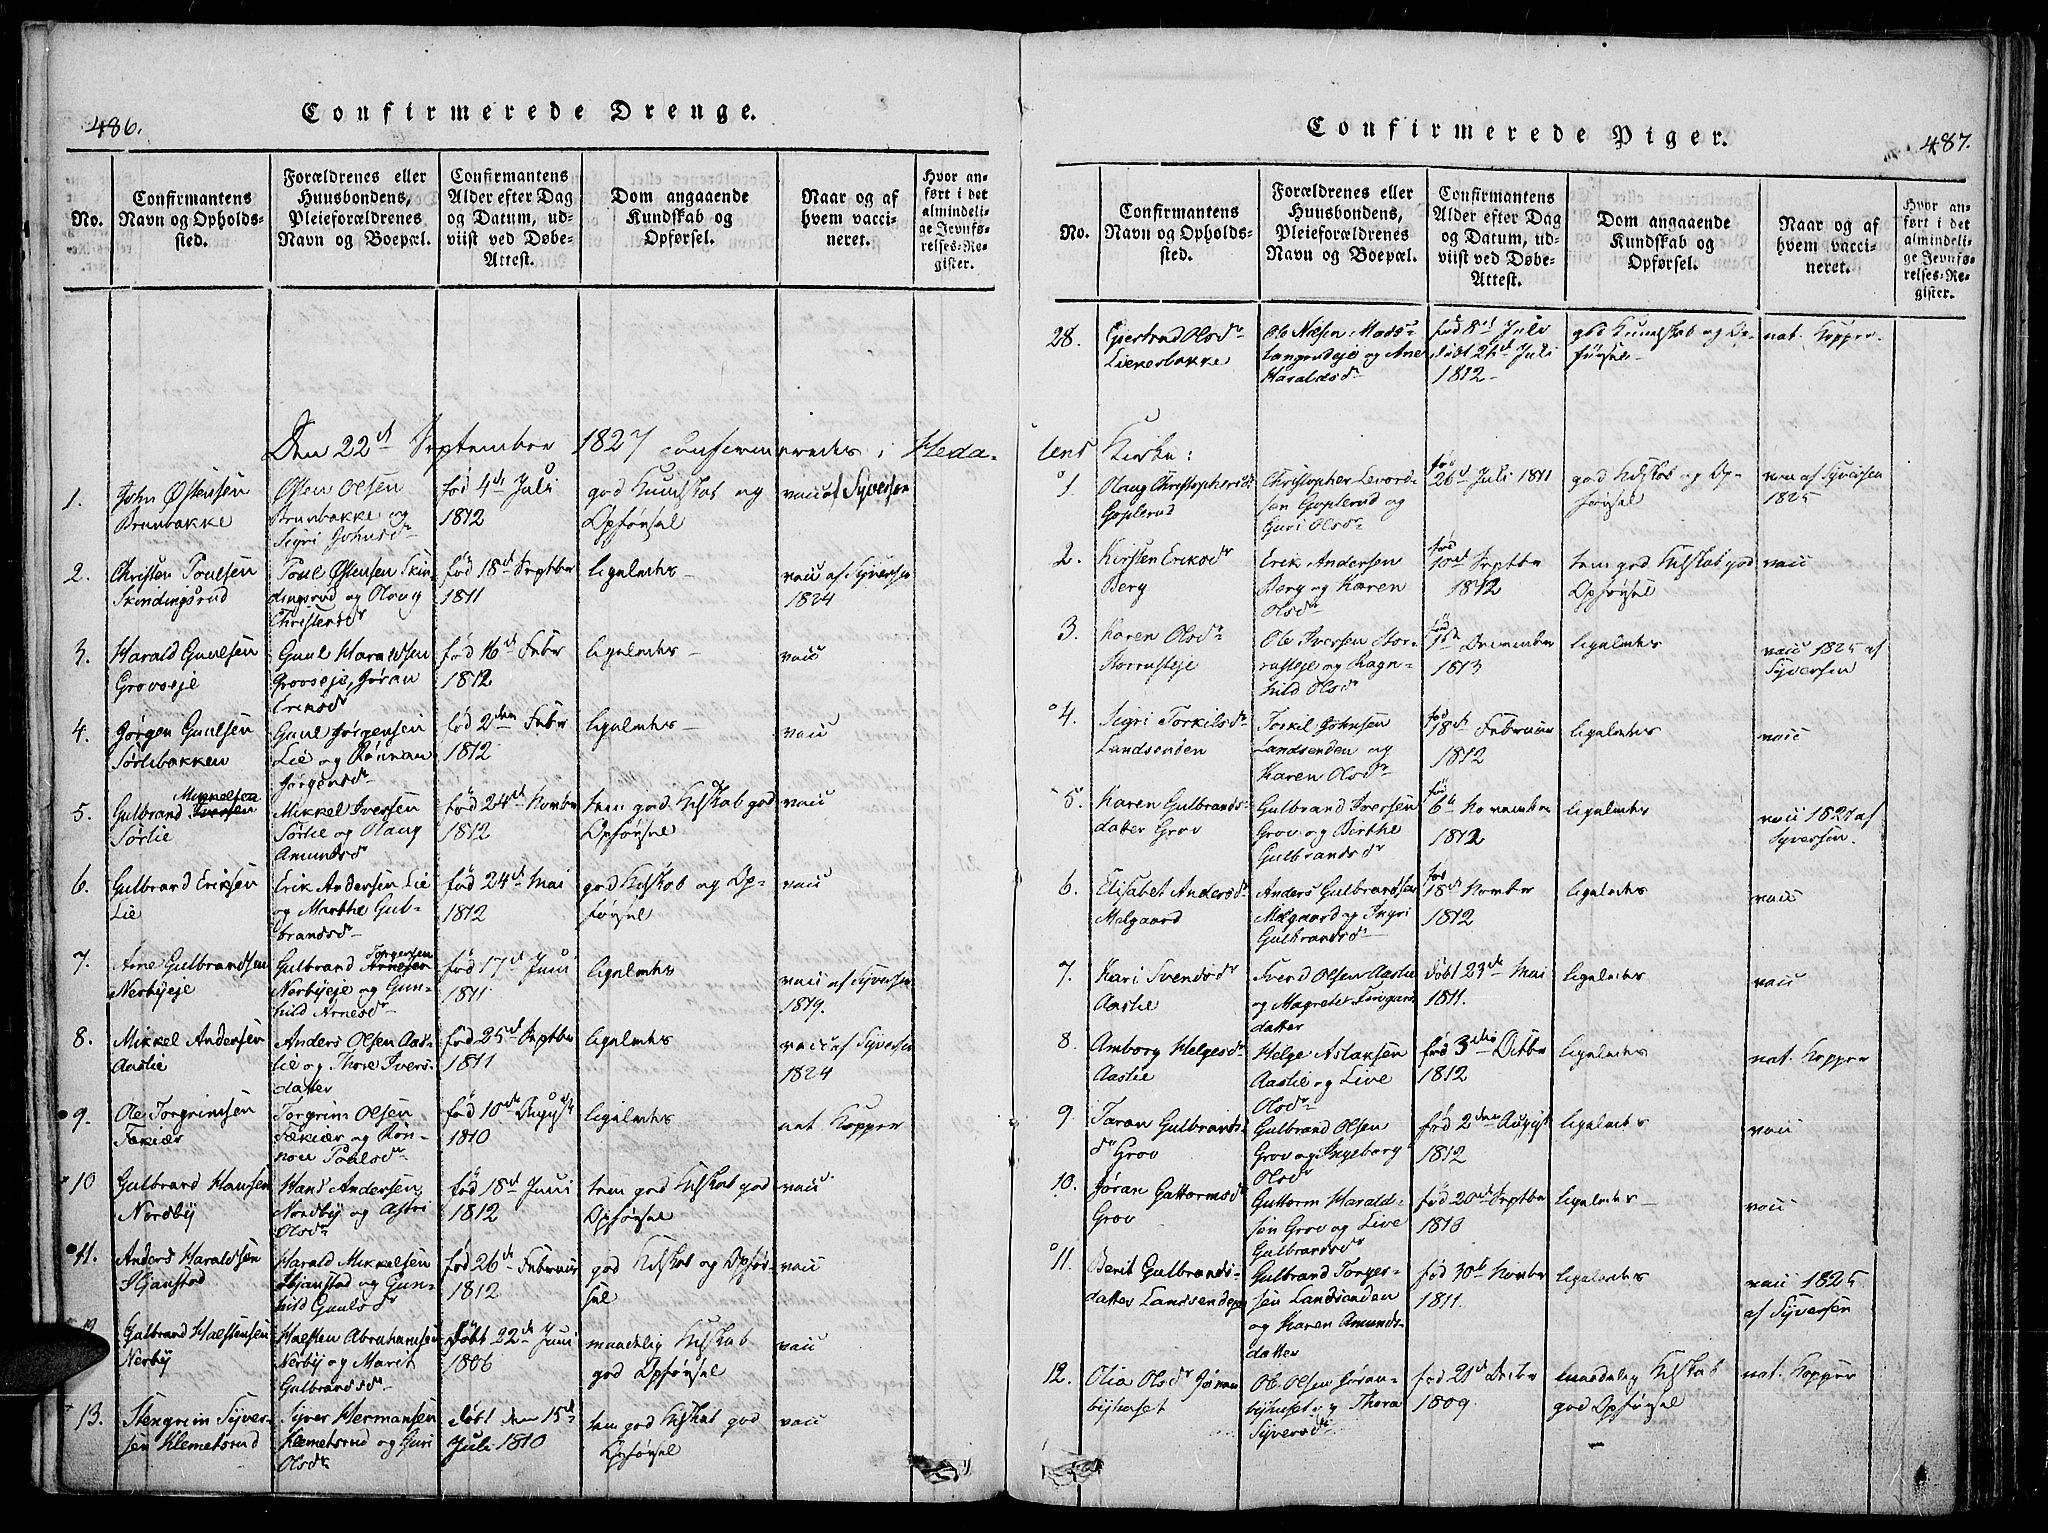 486.
Confirmerede Drenge.
No.
Confirmantens
Navn og Opholds-
sted.
Forældrenes eller
Huusbondens,
Pleieforældrenes
Navn og Boepæl.
Confirmantens
Alder efter Dag
og Datum, ud-
viist ved Døbe-
Attest.
Dom angaaende
Kundskab og
Opførsel.
Naar og af
hvem vacci-
neret.
Hvor an-
ført i det
almindeli-
ge Jevnfø-
relses-Re-
gister.
Den 22de September 1827 confirmeredes i Heda-
1.
John Østensen
Brunbakke
Østen Olsen
Brunbakke og
Sigri Johnsdr
fød 4de Juli
1812
god Kundskab og
Opførsel
vacc af Syversen
2.
Christen Poulsen
Skindingsrud
Poul Østensen Skin-
dingsrud og Olaug
Christensdr
fød 18de Septbr
1811
ligeledes
vacc af Syversen
1824
3.
Harald Guulsen
Grovseje
Guul Haraldsen
Grovseje, Jøran
Eriksdr
fød 16de Febr
1812
ligeledes
vacc
4.
Jørgen Guulsen
Sørlibakken
Guul Jørgensen
Lie og Rønnau
Jørgensdr
fød 2den Febr
1812
ligeledes
vacc
5.
Gulbrand Mikkelsen
Sørlie
Mikkel Iversen
Sørlie og Olaug
Amundsdr
fød 24de Novbr
1812
tem. god Kdskab god
Opførsel
vacc
6.
Gulbrand Eriksen
Lie
Erik Andersen Lie
og Marthe Gul-
brandsdr
fød 24de Mai
1812
god Kdskab og Op-
førsel
vacc
7.
Arne Gulbrandsen
Nerbyeje
Gulbrand Torgersen
Nerbyeje og Gun-
hild Arnesdr
fød 17de Juni
1811
ligeledes
vacc af Syversen
1819.
8.
Mikkel Andersen
Aaslie
Anders Olsen Aas-
lie og Thore Ivers-
datter
fød 25de Septbr
1811
ligeledes
vacc af Syversen
1824
9.
Ole Torgrimsen
Fækiær
Torgrim Olsen
Fækiær og Røn-
nou Poulsdr
fød 10de August
1810
ligeledes
nat. Kopper
10
Gulbrand Hansen
Nordby
Hans Andersen
Nordby og Astri
Olsdr
fød 18de Juni
1812
tem god Kdskab god
Opførsel
vacc
11.
Anders Haraldsen
Skjanstad
Harald Mikkelsen
Skjanstad og Gun-
hild Guulsdr
fød 26de Februar
1812
god Kdskab og Opfør-
sel
vacc
12
Gulbrand Halstensen
Nerby
Halsten Abrahamsen
Nerby og Marit
Gulbrandsdr
døbt 22de Juni
1806
maadelig Kdskab
god Opførsel
vacc
13.
Stengrim Syver-
sen Klemetsrud
Syver Hermansen
Klemetsrud og Guri
Olsdr
døbt den 15de
Juli 1810
tem god Kdskab god
Opførsel
vacc
487.
Confirmerede Piger.
No.
Confirmantens
Navn og Opholds-
sted.
Forældrenes eller
Huusbondens,
Pleieforældrenes
Navn og Boepæl.
Confirmantens
Alder efter Dag
og Datum, ud-
viist ved Døbe-
Attest.
Dom angaaende
Kundskab og
Opførsel.
Naar og af
hvem vacci-
neret.
Hvor an-
ført i det
almindeli-
ge Jevnfø-
relses-Re-
gister.
28.
Gjertrud Olsdr
Liekesbakke
Ole Nilsen
og Ane
Haraldsdr
fød 8de Juli
døbt 26de Juli
1812
god Kundskab og Op-
førsel
nat. Kopper.
lens Kirke:
1.
Olaug Christophersdr
Goplerud
Christopher Levord-
sen Goplerud og
Guri Olsdr
fød
26de Juli 1811
god Kdskab og Op-
førsel
vacc af Syversen
1825
2.
Kirsten Eriksdr
Berg
Erik Andersen
Berg og Karen
Olsdr
fød
10de Septbr
1812
tem god Kdskab god
Opførsel
vacc
3.
Karen Olsdr
Korrusteje
Ole Iversen Kor-
rusteje og Ragn-
hild Olsdr
fød
1ste December
1813
ligeledes
vacc 1825 af
Syversen
4.
Sigri Torkilsdr
Landsenden
Torkil Johnsen
Landsenden og
Karen Olsdr
fød
18de Februar
1812
ligeledes
vacc
5.
Karen Gulbrands-
datter Grov
Gulbrand Iversen
Grov og Birthe
Gulbrandsdr
fød
6te November
1812
ligeledes
vacc 1827 af
Syversen.
6.
Elisabet Andersdr
Melgaard
Anders Gulbrandsen
Melgaard og Ingri
Gulbrandsdr
fød
18de Novbr
1812
ligeledes
vacc
7.
Kari Svendsdr
Aaslie
Svend Olsen Aaslie
og Magrete
datter
døbt 23de Mai
1811.
ligeledes
vacc
8.
Amborg Helgesdr
Aaslie
Helge Aslaksen
Aaslie og Live
Olsdr
fød 3die Octbr
1812
ligeledes
nat. Kopper
9.
Taran Gulbrands-
dr Grov
Gulbrand Olsen
Grov og Ingeborg
Olsdr
fød 2den August
1812
ligeledes
vacc
10.
Jøran Guttormsdr
Grov
Guttorm Harald-
sen Grov og Live
Gulbrandsdr
fød 20de Septbr
1813
ligeledes
vacc
11.
Berit Gulbrands-
datter Landsendeje
Gulbrand Torger-
sen Landsenden
og Karen Amunds-
datter
fød 30te Novbr
1811.
ligeledes
vacc 1825
af Syversen
12.
Olia Olsdr Jøran-
byhuset
Ole Olsen Jøran-
byhuset og Thora
Syversdr
fød 21de Decbr
1809.
maadelig Kdskab
god Opførsel
nat. Kopper